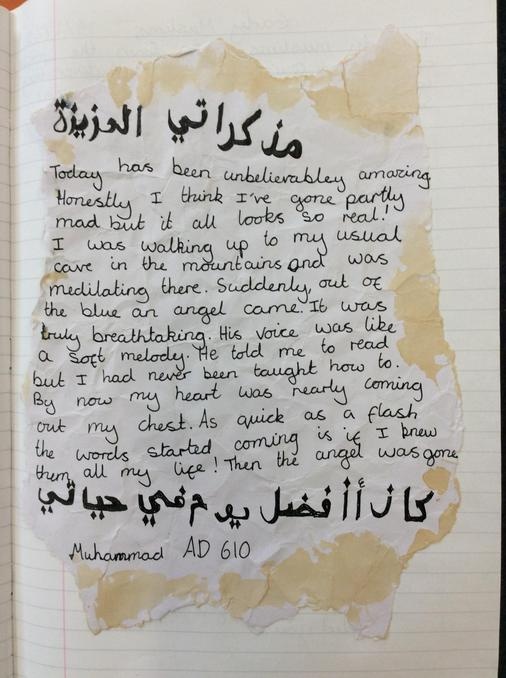 مذكراتي العزيزة
Today has been unbelievabley amazing
Honestly I think I've gone partly
mad but it all looks so real!
I was walking up to my usual
cave in the mountains and was
medilating there. Suddenly, out of
the blue an angel came. It was
truly breathtaking. His voice was like
a soft melody. He told me to read
but I had never been taught how to.
By now my heart was nearly coming
out my chest. As quick as a flash
the words started coming is if I knew
them all my life! Then the angel was gone
كان أأفضل يوم في حياتي
Muhammad AD 610